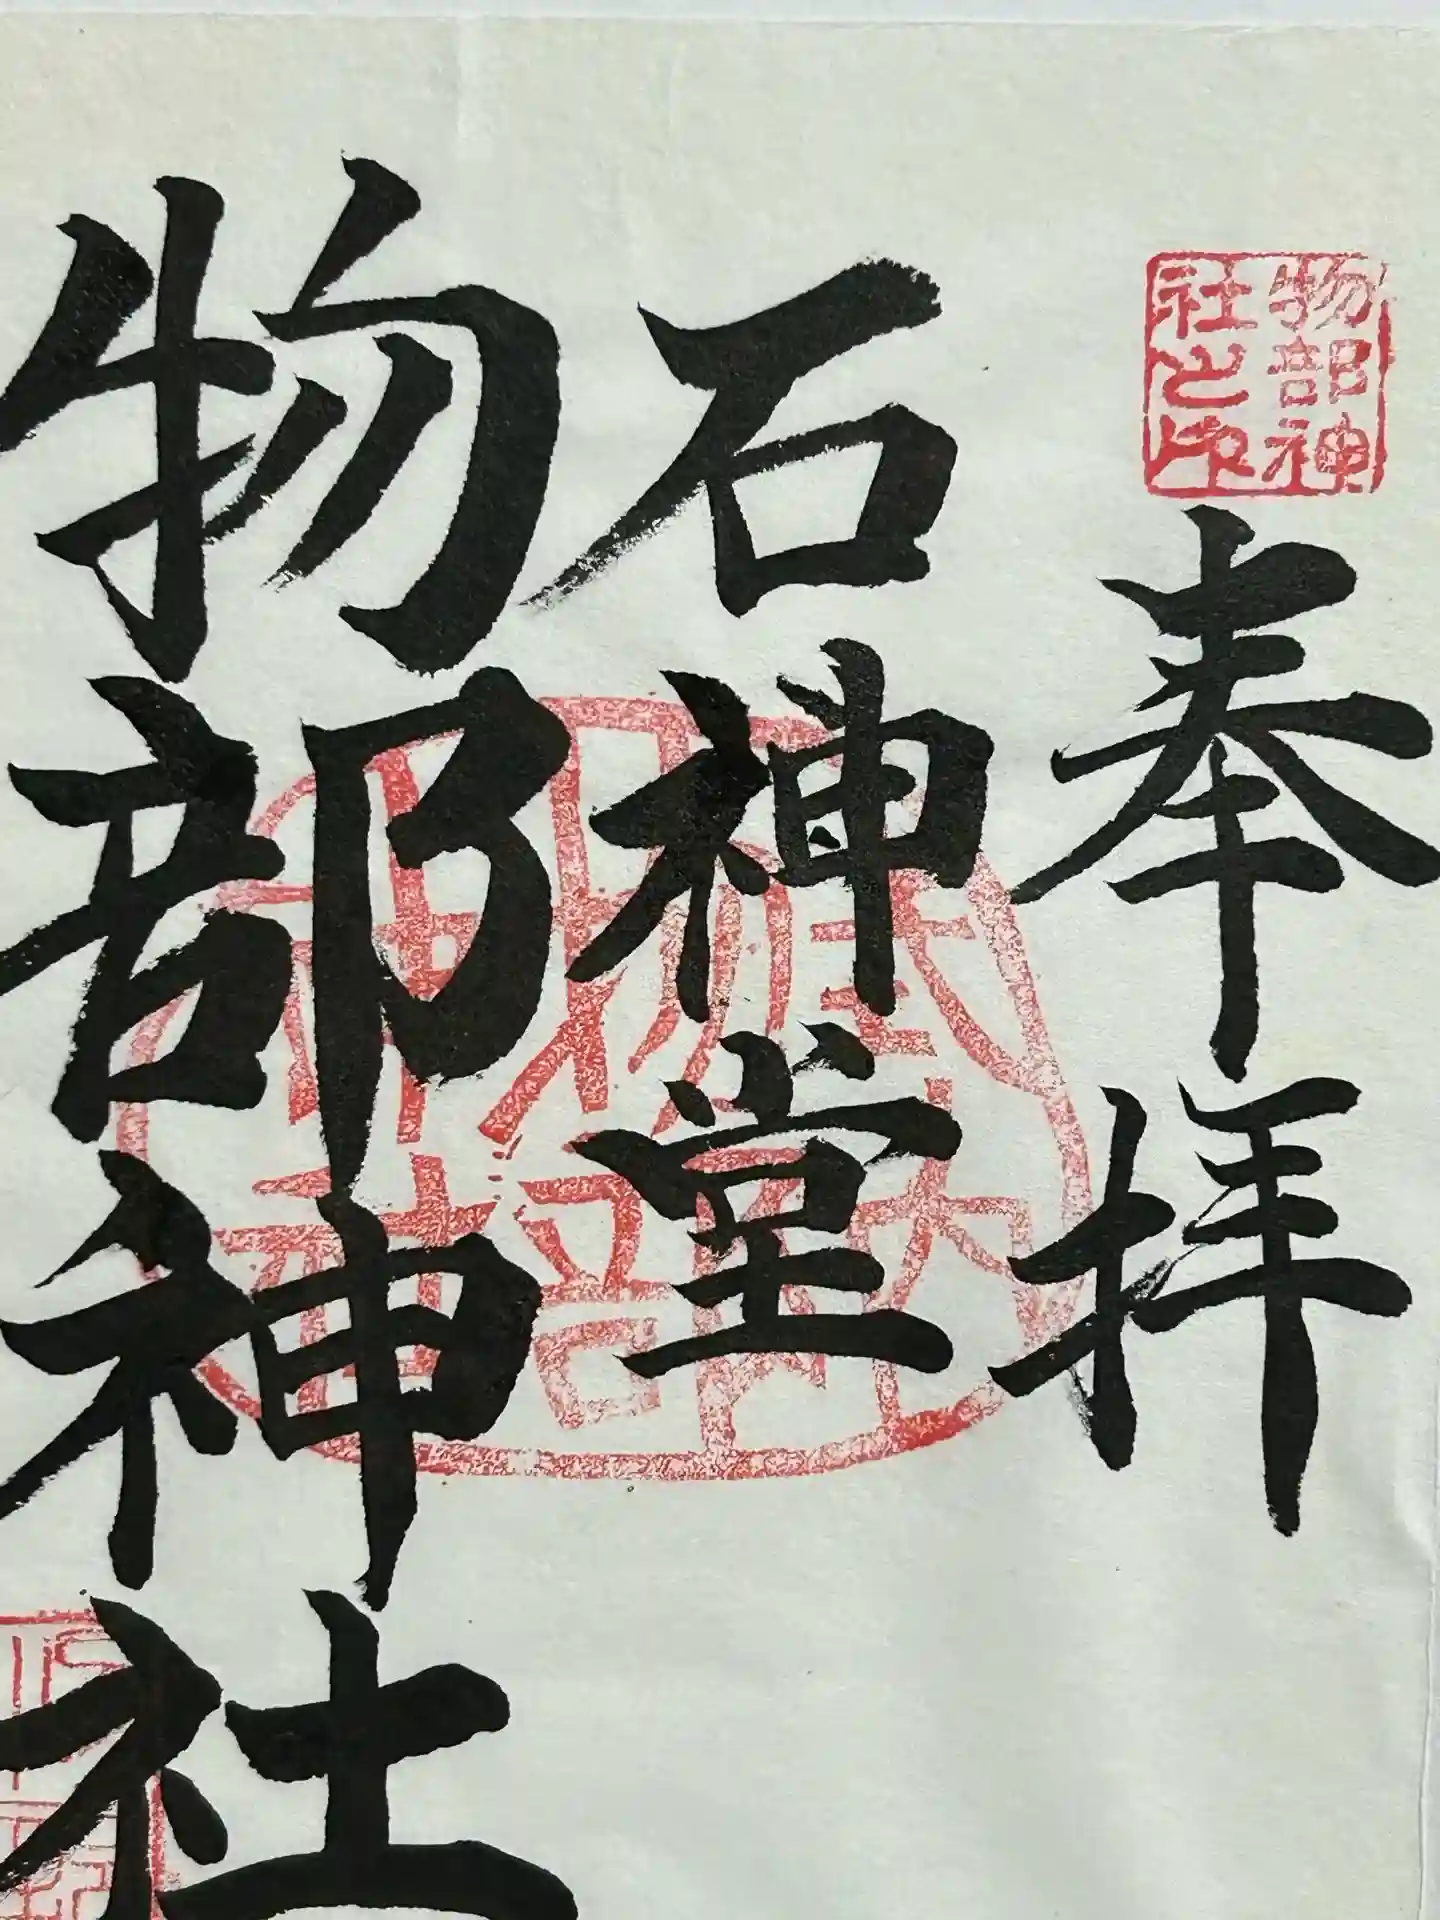 物部神社之印
奉拝
石神堂
物部神社